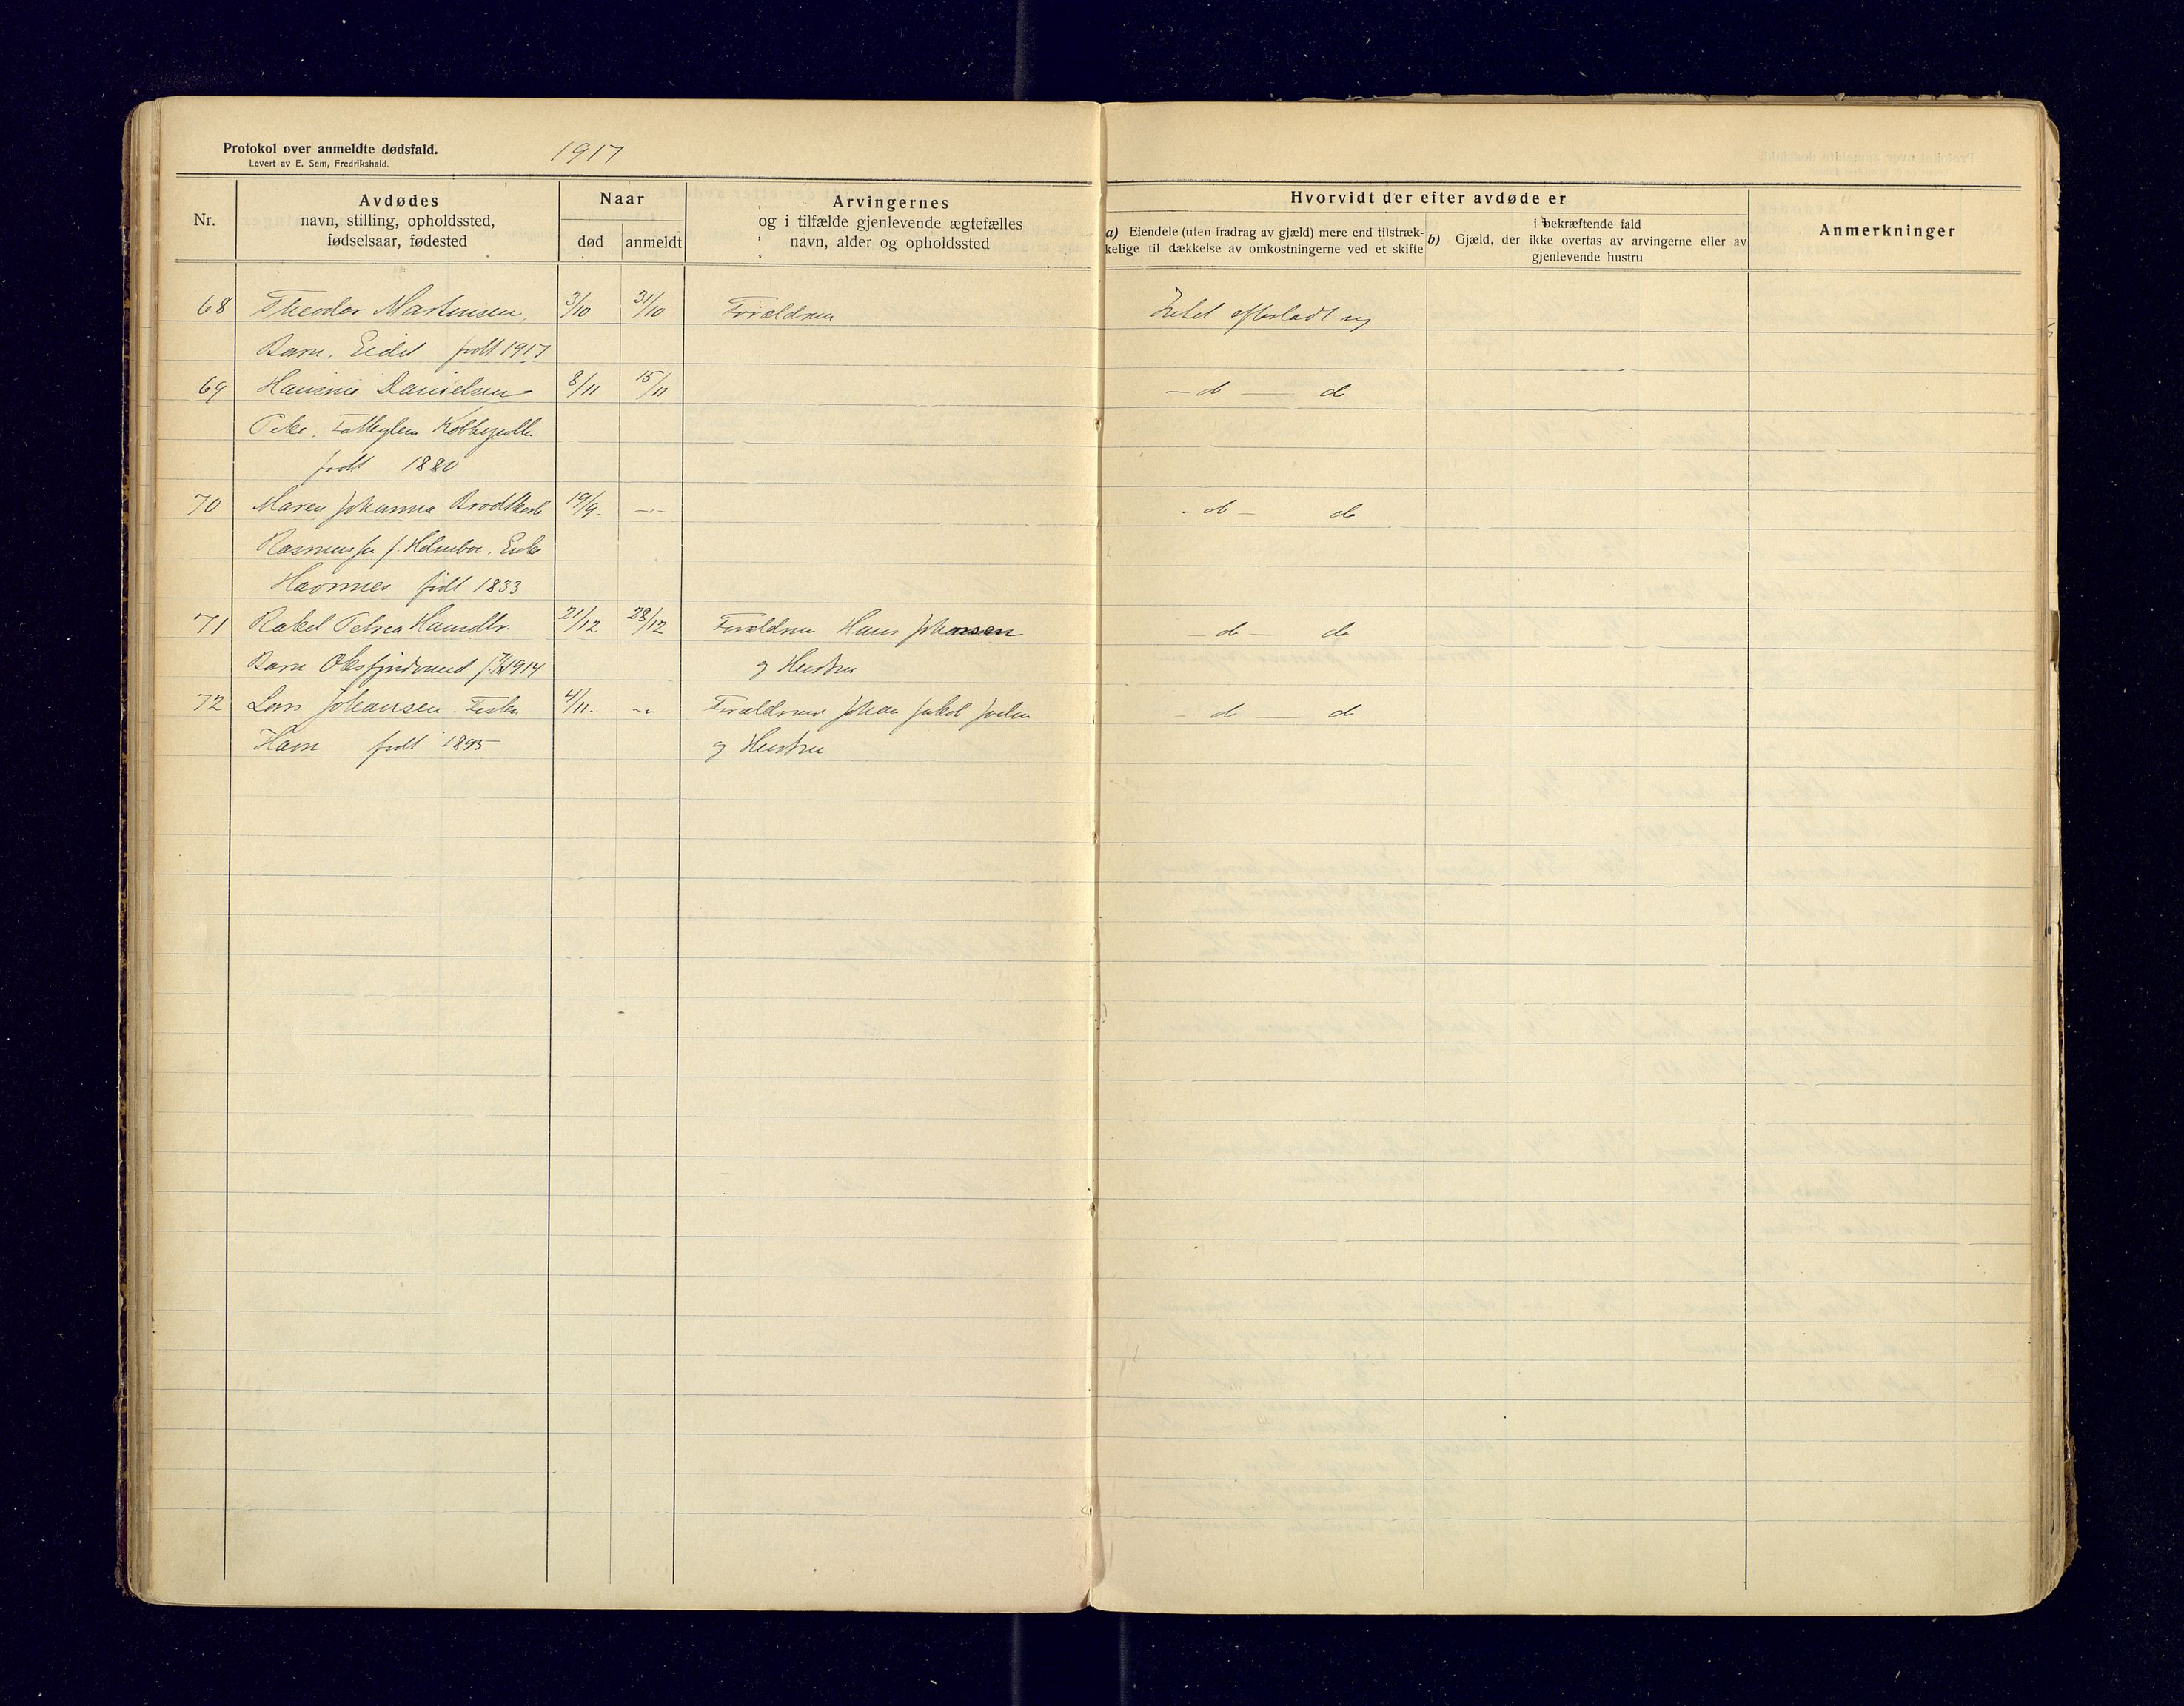 Protokol over anmeldte dødsfald. 1917
Levert av E. Sem, Fredrikshald.
Nr.
Avdødes
navn, stilling, opholdssted,
fødselsaar, fødested
Naar
død anmeldt
Arvingernes
og i tilfælde gjenlevende ægtefælles
navn, alder og opholdssted
Hvorvidt der efter avdøde er
a) Eiendele (uten fradrag av gjæld) mere end tilstræk-
kelige til dækkelse av omkostningerne ved et skifte
i bekræftende fald
b) Gjæld, der ikke overtas av arvingerne eller av
gjenlevende hustru
Anmerkninger
68 Theodor Martinsen, 3/10 31/10 Forældrene Intet efterladt sig
Barn. Eidet født 1917
69 Hansine Danielsen 8/11 15/11 - d - d
Pike. Kobbepollen
født 1880
70 Maren Johanna Brodtkorb 19/9 - - - d - d
f. Holmboe. Enke
Havnnes født 1833
71 Rakel Petrea Hansdtr. 21/12 28/12 Forældrene Hans Johansen - d - d
Barn 1914 og Hustru
72 Lars Johansen. 4/11. - - Forældrene Johan Jakob - d - d
Havn født 1895 og Hustru